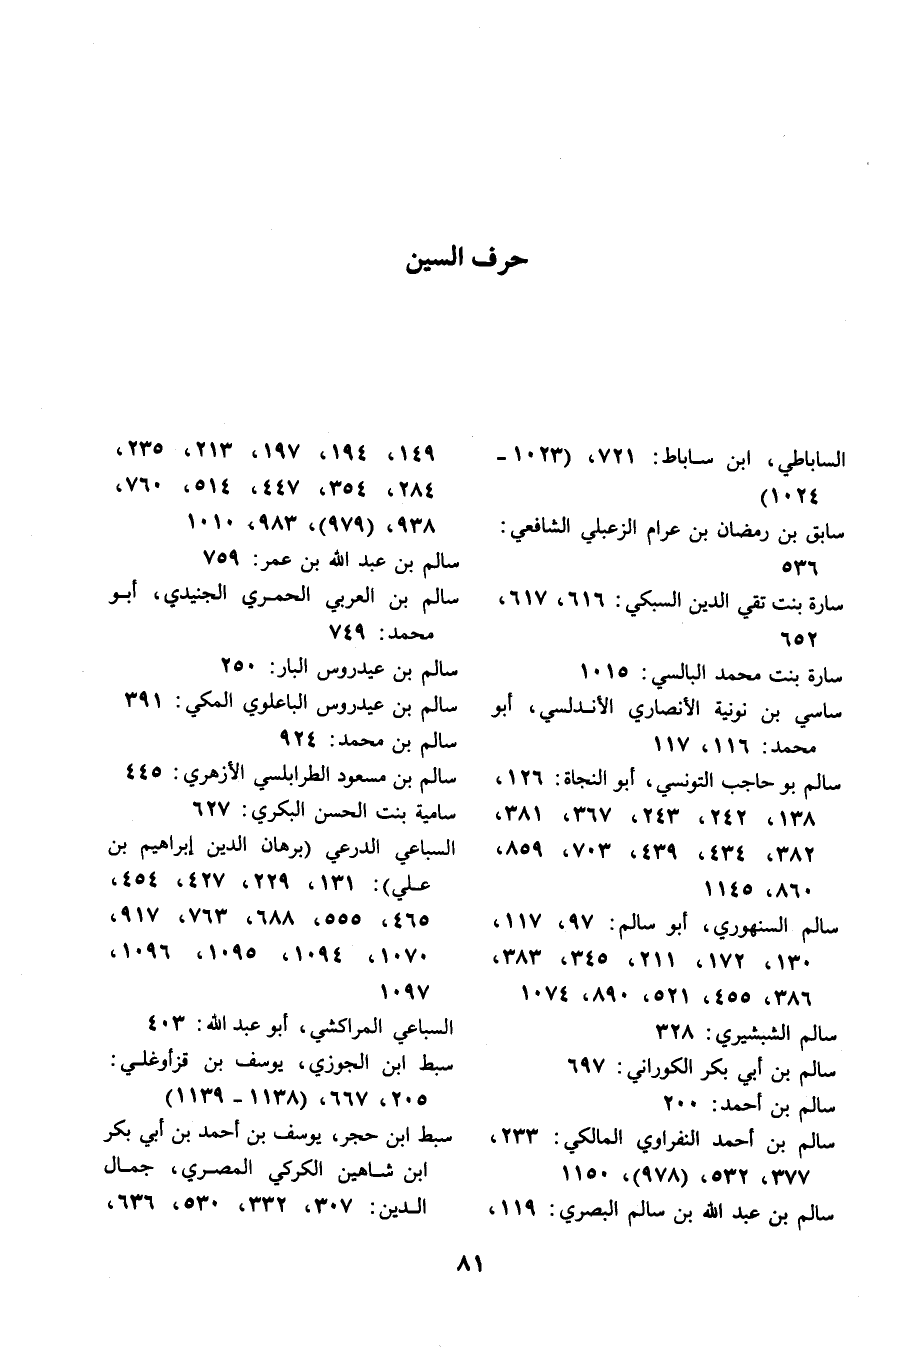 حرف السين
الساباطي، ابن ساباط: ٧٢١، (١٠٢٣ -
١٠٢٤)
سابق بن رمضان بن عرام الزعبلي الشافعي:
٥٣٦
سارة بنت تقي الدين السبكي: ٦١٦، ٦١٧،
٦٥٢
سارة بنت محمد البالسي: ١٠١٥
ساسي بن نونية الأنصاري الأندلسي، أبو
محمد: ١١٦، ١١٧
سالم بو حاجب التونسي، أبو النجاة: ١٢٦،
١٣٨، ٢٤٢، ٢٤٣، ٣٦٧، ٣٨١،
٣٨٢، ٤٣٤، ٤٣٩، ٧٠٣، ٨٥٩،
٨٦٠، ١١٤٥
سالم السنهوري، أبو سالم: ٩٧، ١١٧،
١٣٠، ١٧٢، ٢١١، ٣٤٥، ٣٨٣،
٣٨٦، ٤٥٥، ٥٢١، ٨٩٠، ١٠٧٤
سالم الشبشيري: ٣٢٨
سالم بن أبي بكر الكوراني: ٦٩٧
سالم بن أحمد: ٢٠٠
سالم بن أحمد النفراوي المالكي: ٢٣٣،
٣٧٧، ٥٣٢، (٩٧٨)، ١١٥٠
سالم بن عبد الله بن سالم البصري: ١١٩،
١٤٩، ١٩٤، ١٩٧، ٢١٣، ٢٣٥،
٢٨٤، ٣٥٤، ٤٤٧، ٥١٤، ٧٦٠،
٩٣٨، (٩٧٩)، ٩٨٣، ١٠١٠
سالم بن عبد الله بن عمر: ٧٥٩
سالم بن العربي الحمري الجنيدي، أبو
محمد: ٧٤٩
سالم بن عيدروس البار: ٢٥٠
سالم بن عيدروس الباعلوي المكي: ٣٩١
سالم بن محمد: ٩٢٤
سالم بن مسعود الطرابلسي الأزهري: ٤٤٥
سامية بنت الحسن البكري: ٦٢٧
السباعي الدرعي (برهان الدين إبراهيم بن
علي): ١٣١، ٢٢٩، ٤٢٧، ٤٥٤،
٤٦٥، ٥٥٥، ٦٨٨، ٧٦٣، ٩١٧،
١٠٧٠، ١٠٩٤، ١٠٩٥، ١٠٩٦،
١٠٩٧
السباعي المراكشي، أبو عبد الله: ٤٠٣
سبط ابن الجوزي، يوسف بن قزأوغلي:
٢٠٥، ٦٦٧، (١١٣٨ - ١١٣٩)
سبط ابن حجر، يوسف بن أحمد بن أبي بكر
ابن شاهين الكركي المصري، جمال
الدين: ٣٠٧، ٣٣٢، ٥٣٠، ٦٣٦،
٨١